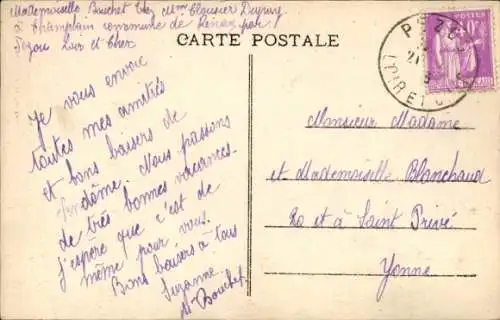 Mademoiselle Bouchet Chez Mme Clousier Dupuy
à Champlain commune de Renay par
Pezou Loir et Cher
CARTE POSTALE
PEZOU
21
LOIR ET CHER
Je vous envoie
toutes mes amitiés
et bons baisers de
Vendôme. Nous passons
de très bonnes vacances.
J'espère que c'est de
même pour vous.
Bons baisers à tous
Suzanne
Bouchet
Monsieur Madame
et Mademoiselle Blanchaud
20 et à Saint Privé
Yonne